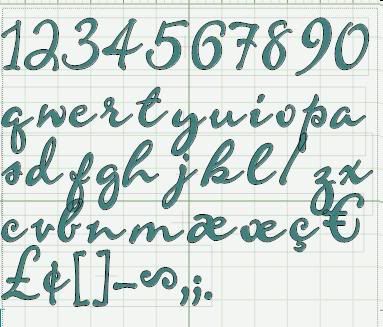 1234567890
qwertyuiopa
sdfghjkl/zx
cvbnmæœç€
£¢[]-~,;.